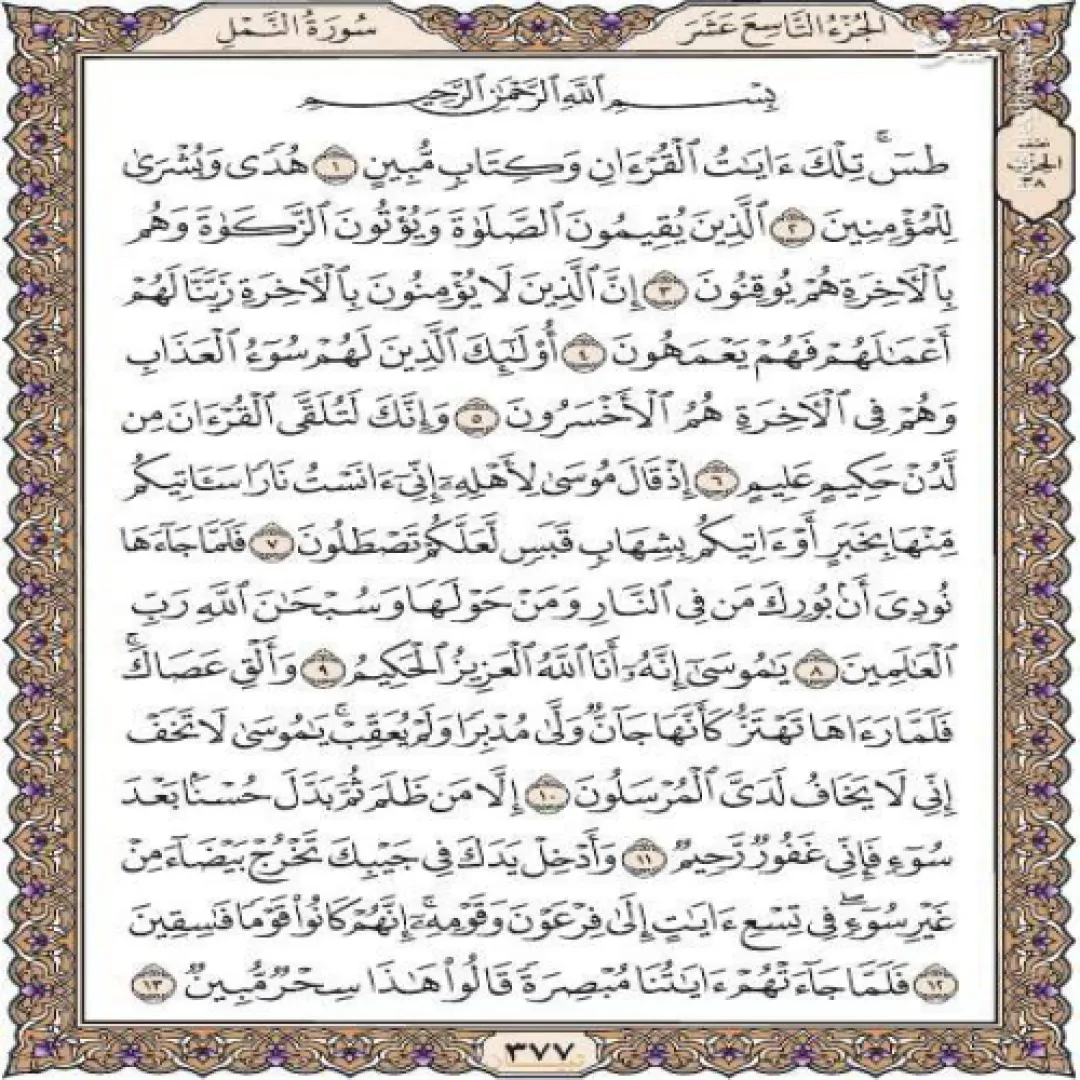 الجُزْءُ التَّاسِعَ عَشَرَ
سُورَةُ النَّمْلِ
نصف
الحزب
٣٨
بِسْمِ ٱللَّهِ ٱلرَّحْمَٰنِ ٱلرَّحِيمِ
طسٓۚ تِلْكَ ءَايَٰتُ ٱلْقُرْءَانِ وَكِتَابٍ مُّبِينٍ ١ هُدًى وَبُشْرَىٰ
لِلْمُؤْمِنِينَ ٢ ٱلَّذِينَ يُقِيمُونَ ٱلصَّلَوٰةَ وَيُؤْتُونَ ٱلزَّكَوٰةَ وَهُم
بِٱلْأَخِرَةِ هُمْ يُوقِنُونَ ٣ إِنَّ ٱلَّذِينَ لَا يُؤْمِنُونَ بِٱلْأَخِرَةِ زَيَّنَّا لَهُمْ
أَعْمَٰلَهُمْ فَهُمْ يَعْمَهُونَ ٤ أُوْلَٰٓئِكَ ٱلَّذِينَ لَهُمْ سُوٓءُ ٱلْعَذَابِ
وَهُمْ فِى ٱلْأَخِرَةِ هُمُ ٱلْأَخْسَرُونَ ٥ وَإِنَّكَ لَتُلَقَّى ٱلْقُرْءَانَ مِن
لَّدُنْ حَكِيمٍ عَلِيمٍ ٦ إِذْ قَالَ مُوسَىٰ لِأَهْلِهِۦٓ إِنِّىٓ ءَانَسْتُ نَارًا سَـَٔاتِيكُم
مِّنْهَا بِخَبَرٍ أَوْ ءَاتِيكُم بِشِهَابٍ قَبَسٍ لَّعَلَّكُمْ تَصْطَلُونَ ٧ فَلَمَّا جَآءَهَا
نُودِىَ أَنۢ بُورِكَ مَن فِى ٱلنَّارِ وَمَنْ حَوْلَهَا وَسُبْحَٰنَ ٱللَّهِ رَبِّ
ٱلْعَٰلَمِينَ ٨ يَٰمُوسَىٰٓ إِنَّهُۥٓ أَنَا ٱللَّهُ ٱلْعَزِيزُ ٱلْحَكِيمُ ٩ وَأَلْقِ عَصَاكَۚ
فَلَمَّا رَءَاهَا تَهْتَزُّ كَأَنَّهَا جَآنٌّ وَلَّىٰ مُدْبِرًا وَلَمْ يُعَقِّبْۚ يَٰمُوسَىٰ لَا تَخَفْ
إِنِّى لَا يَخَافُ لَدَىَّ ٱلْمُرْسَلُونَ ١٠ إِلَّا مَن ظَلَمَ ثُمَّ بَدَّلَ حُسْنًۢا بَعْدَ
سُوٓءٍ فَإِنِّى غَفُورٌ رَّحِيمٌ ١١ وَأَدْخِلْ يَدَكَ فِى جَيْبِكَ تَخْرُجْ بَيْضَآءَ مِنْ
غَيْرِ سُوٓءٍۖ فِى تِسْعِ ءَايَٰتٍ إِلَىٰ فِرْعَوْنَ وَقَوْمِهِۦٓۚ إِنَّهُمْ كَانُوا۟ قَوْمًا فَٰسِقِينَ
١٢ فَلَمَّا جَآءَتْهُمْ ءَايَٰتُنَا مُبْصِرَةً قَالُوا۟ هَٰذَا سِحْرٌ مُّبِينٌ ١٣
٣٧٧